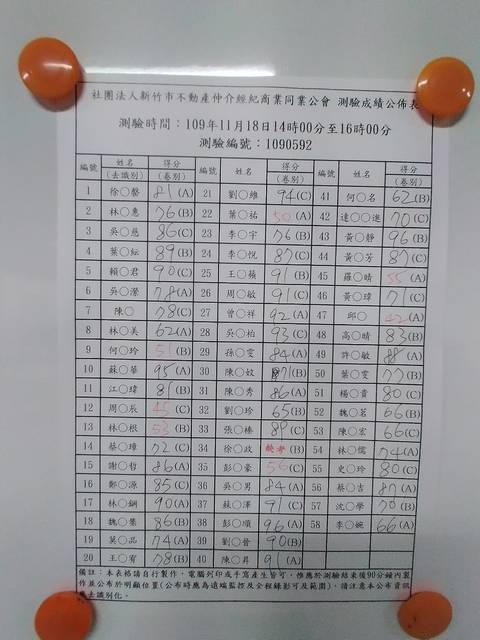 社團法人新竹市不動產仲介經紀商業同業公會 測驗成績公佈表
測驗時間：109年11月18日14時00分至16時00分
測驗編號：1090592
編號 姓名(去識別) 得分(卷別) 編號 姓名 得分(卷別) 編號 姓名 得分(卷別)
1 徐○馨 81(A) 21 劉○維 94(C) 41 何○名 62(B)
2 林○惠 76(B) 22 葉○祐 50(A) 42 達○○進 70(C)
3 吳○慈 86(C) 23 李○宇 76(B) 43 黃○靜 96(B)
4 葉○紜 89(B) 24 李○悅 87(C) 44 黃○芳 87(C)
5 賴○君 90(C) 25 王○蘋 91(B) 45 羅○晴 55(A)
6 吳○潔 78(A) 26 周○敏 91(C) 46 黃○瑋 71(C)
7 陳○ 78(C) 27 曾○祥 92(A) 47 邱○ 42(A)
8 林○美 62(A) 28 吳○柏 93(C) 48 高○晴 83(B)
9 何○玲 51(B) 29 孫○雯 84(A) 49 許○敏 88(A)
10 蘇○華 95(A) 30 陳○妏 71(B) 50 葉○雯 77(B)
11 江○瑋 81(B) 31 陳○秀 86(A) 51 楊○貴 80(C)
12 周○辰 45(C) 32 劉○珍 65(B) 52 魏○茗 66(B)
13 林○根 53(B) 33 張○榛 89(C) 53 陳○宏 66(C)
14 蔡○璋 72(C) 34 徐○政 缺考(B) 54 林○儒 74(A)
15 謝○哲 86(A) 35 彭○豪 56(C) 55 史○玲 80(C)
16 鄭○源 85(C) 36 吳○男 84(A) 56 蔡○吉 87(A)
17 林○鋼 90(A) 37 蘇○澤 91(C) 57 沈○學 70(B)
18 魏○集 86(B) 38 彭○順 96(A) 58 李○婉 66(A)
19 莫○品 74(A) 39 劉○晉 90(B)
20 王○宥 78(B) 40 陳○昇 91(A)
備註：本表格請自行製作，電腦列印或手寫產生皆可，惟應於測驗結束後90分鐘內製
作並公布於明顯位置(公布時應為遠端監控及全程錄影可及範圍)，請注意本公布資訊
應去識別化。